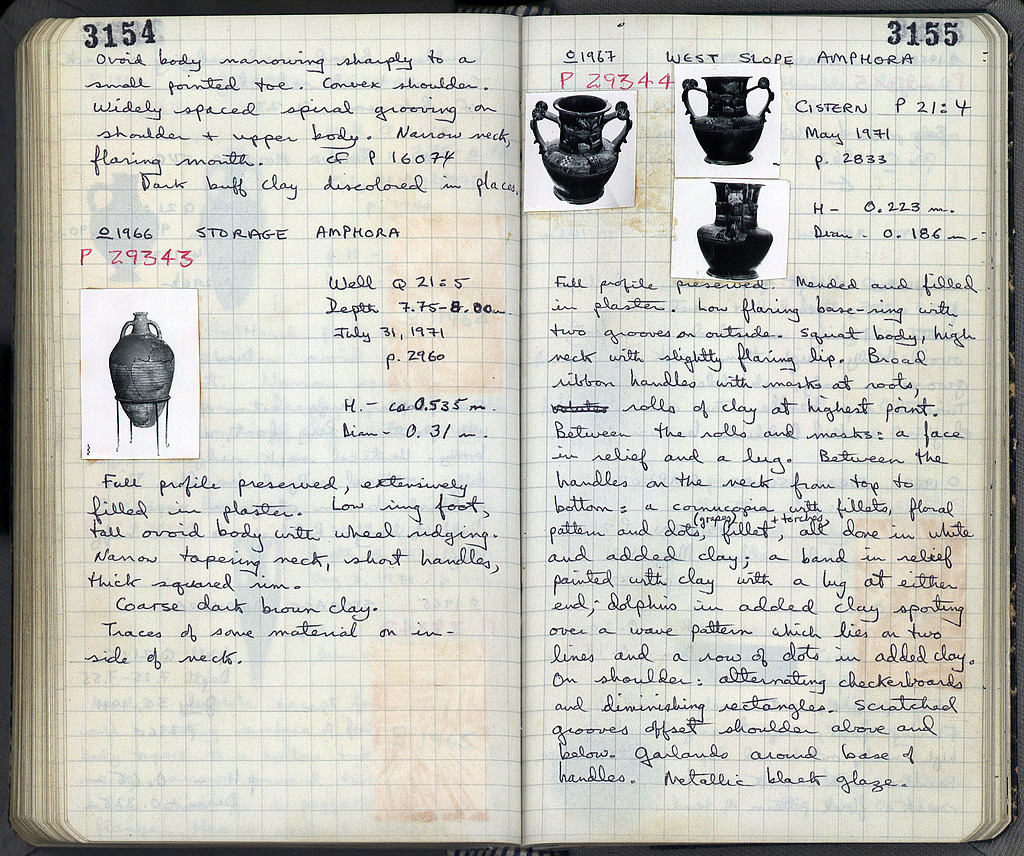 3154
Ovoid body narrowing sharply to a
small pointed toe. Convex shoulder.
Widely spaced spiral grooving on
shoulder + upper body. Narrow neck,
flaring mouth. cf P 16074
Dark buff clay discolored in places.
O1966 STORAGE AMPHORA
P 29343
Well Q 21:5
Depth 7.75-8.00m.
July 31, 1971
p. 2960
H. - ca 0.535 m.
Diam - 0.31 m.
Full profile preserved, extensively
filled in plaster. Low ring foot,
tall ovoid body with wheel ridging.
Narrow tapering neck, short handles,
thick squared rim.
Coarse dark brown clay.
Traces of some material on in-
side of neck.
3155
O1967 WEST SLOPE AMPHORA
P 29344
CISTERN P 21:4
May 1971
p. 2833
H - 0.223 m.
Diam - 0.186 m.
Full profile preserved. Mended and filled
in plaster. Low flaring base-ring with
two grooves on outside. Squat body, high
neck with slightly flaring lip. Broad
ribbon handles with masks at roots,
volutes rolls of clay at highest point.
Between the rolls and masks: a face
in relief and a lug. Between the
handles on the neck from top to
bottom: a cornucopia with fillets, floral
pattern and dots, (grapes) fillet, + torches, all done in white
and added clay; a band in relief
painted with clay with a lug at either
end; dolphins in added clay sporting
over a wave pattern which lies on two
lines and a row of dots in added clay.
On shoulder: alternating checkerboards
and diminishing rectangles. Scratched
grooves offset shoulder above and
below. Garlands around base of
handles. Metallic black glaze.